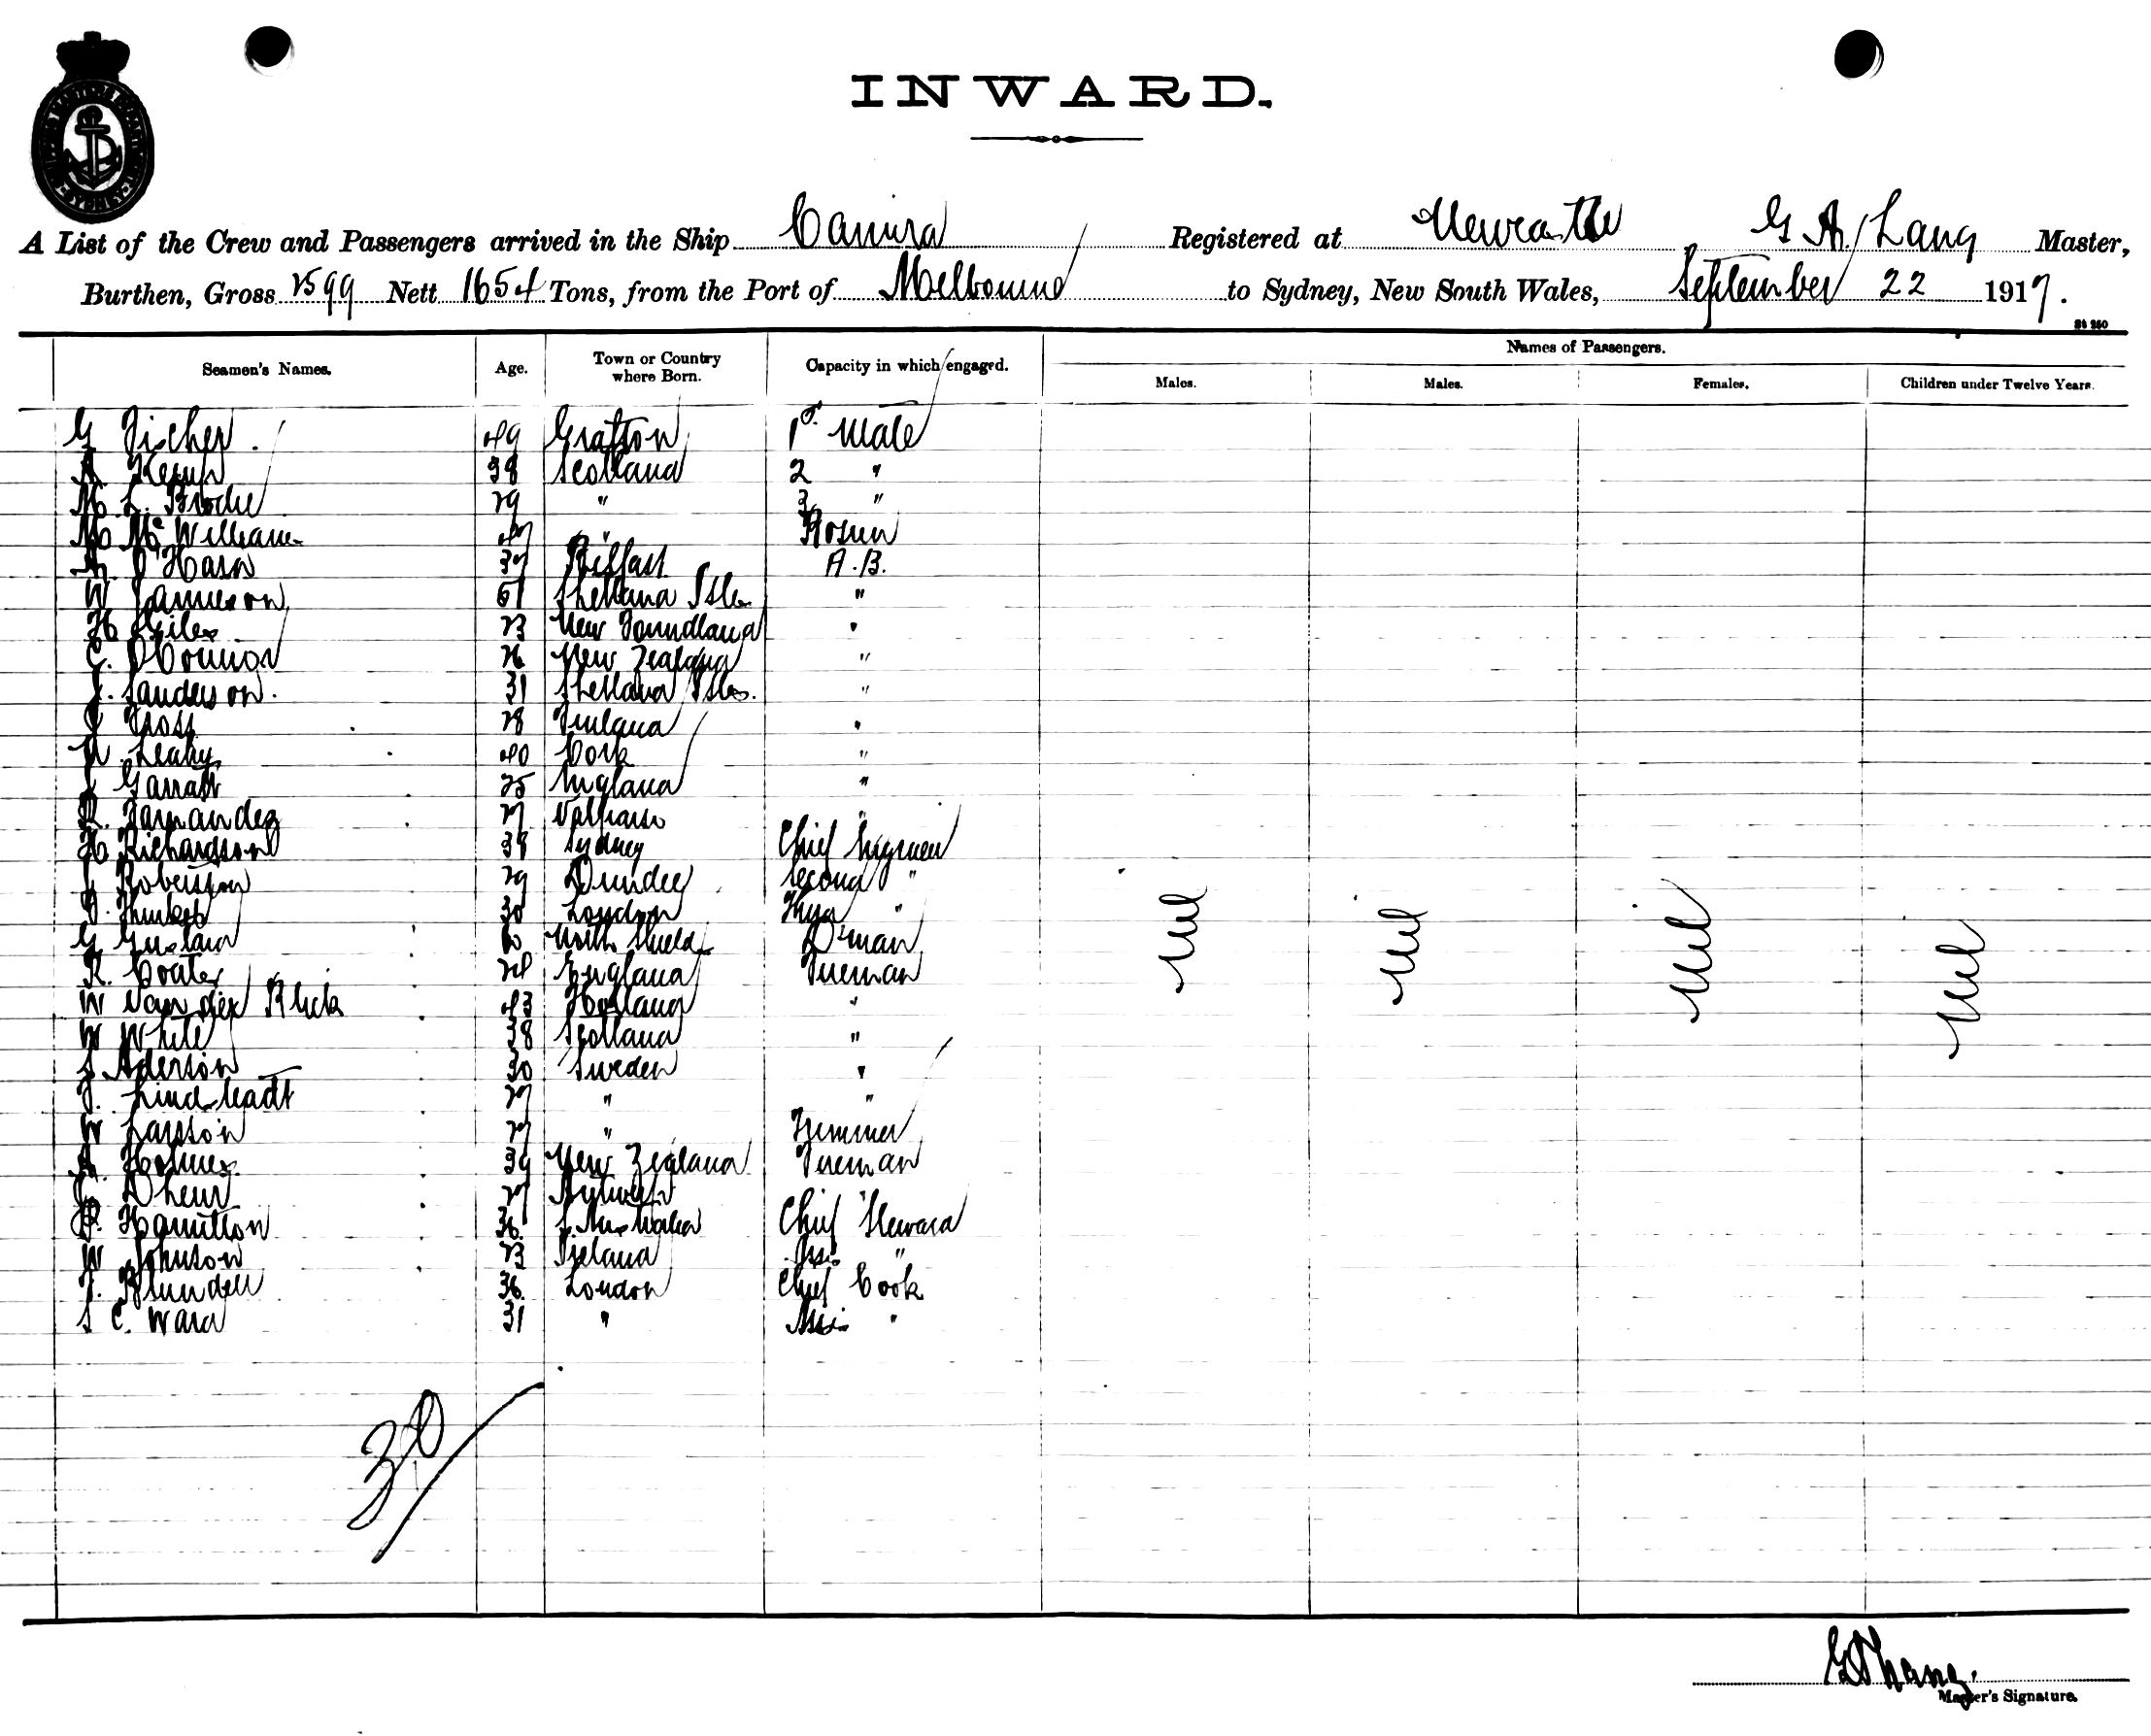 INWARD.
A List of the Crew and Passengers arrived in the Ship Camira Registered at Newcastle G A Lang Master,
Burthen, Gross 2599 Nett 1654 Tons, from the Port of Melbourne to Sydney, New South Wales, September 22 1917.
Names of Passengers.
Seamen's Names. Age. Town or Country where Born. Capacity in which engaged. Males. Males. Females. Children under Twelve Years.
G Fischer 49 Grafton 1st Mate
A. Kemp 38 Scotland 2 "
M L. Brodie 29 " 3 "
M McWilliam 47 " Bosun
A. O'Hara 37 Belfast A.B.
W Jamieson 61 Shetland Isles "
H Giles 23 New Foundland "
C. O'Connor 26 New Zealand "
J. Sanderson. 31 Shetland Isles. "
J Fross 28 Finland "
M Leahy 40 Cork "
J Garratt 25 England "
R. Farnandez 27 Valparaiso "
H Richardson 38 Sydney Chief Engineer
J Robertson 29 Dundee Second "
30 London Third "
G 60 North Shields D'man
R. Coates 24 England Fireman
W Van der 43 Holland "
W White 38 Scotland "
S Aderson 30 Sweden "
J. Lindstadt 27 " "
W Larsson 27 " Trimmer
A. Holmes 39 New Zealand Fireman
27 Antwerp
P. Hamilton 36 S. Australia Chief Steward
W Johnson 23 Ireland Assi "
J. Blundell 36 London Chief Cook
S C. Ward 31 " Assi "
Nil Nil Nil Nil
30
G A Lang.
Master's Signature.